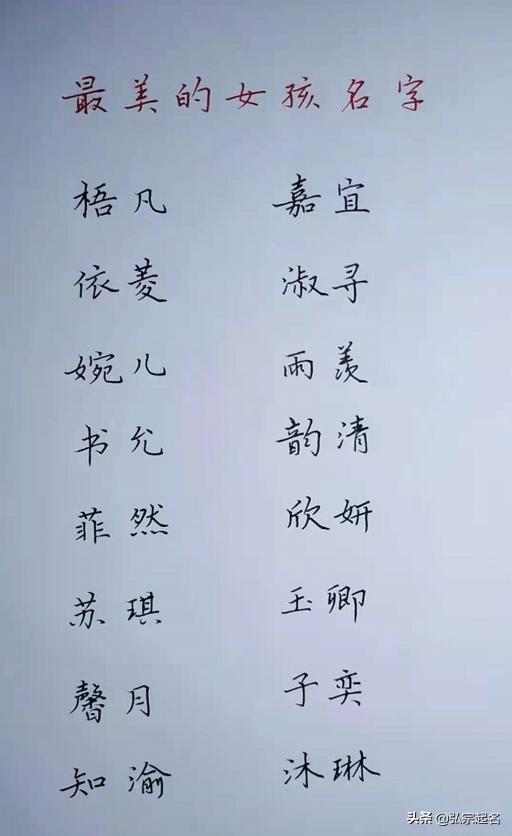 最美的女孩名字
梧凡 嘉宜
依菱 淑寻
婉儿 雨羡
书允 韵清
菲然 欣妍
苏琪 玉卿
馨月 子奕
知渝 沐琳
头条 @弘宗起名